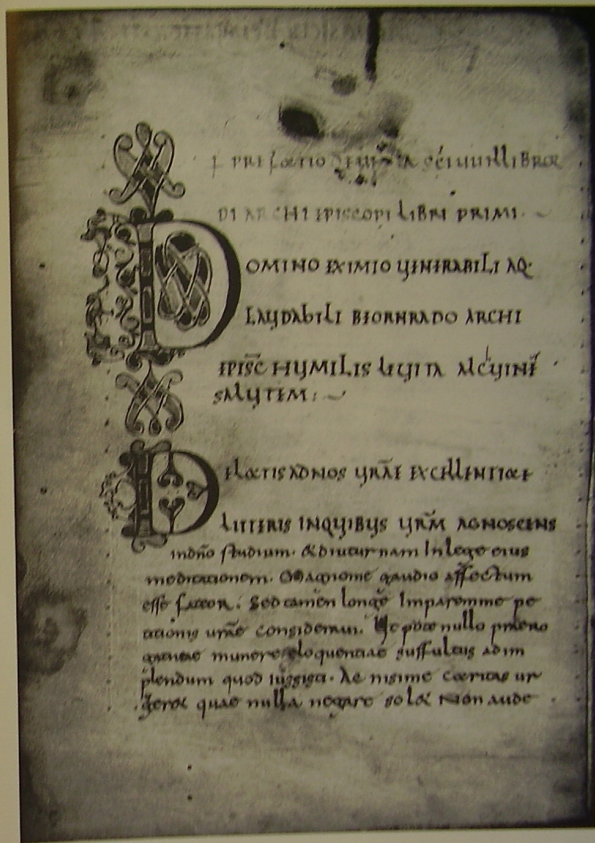 PREFATIO VITA SCI WILLIBRO
DI ARCHIEPISCOPI LIBRI PRIMI.
DOMINO EXIMIO VENERABILI AQ:
LAUDABILI BEORNRADO ARCHI
EPISC̄ HUMILIS LEVITA ALCVINE
SALUTEM:
DELATIS AD NOS VR̄AE EXCELLENTIAE
LITTERIS INQUIBUS VR̄M AGNOSCENS
indn̄o studium. & diuturnam In lege eius
meditationem. Magnome gaudio affectum
esse fateor. Sed tamen longe Imparemme pe
titionis ur̄ae consideraui. Ut pote nullo praero
gatiuae munere eloquentiae suffultus ad im
plendum quod iussisti. Ac nisime caritas ur
geret quae nulla negare sola Non aude